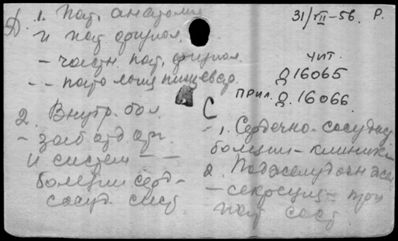 1. Пат. анатомия
и пат. физиол.
- частн. пат. физиол.
-- патология пищевар.
2. Внутр. бол.
- заб отд орг
и систем - -
болезни серд-
сосуд. сист
31/VII-56. Р.
чит.
Д 16065
прил. Д. 16066
С
1. Сердечно-сосудист
болезни - клиника
2. Поджелудочн жел
- секреция - при
пат. сост.